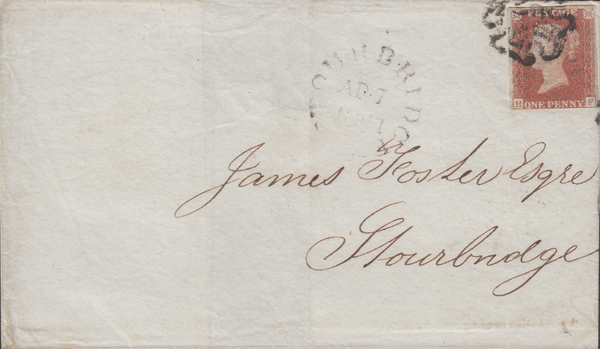 STOURBRIDGE
AP 7
ONE PENNY
James Foster Esqre
Stourbridge